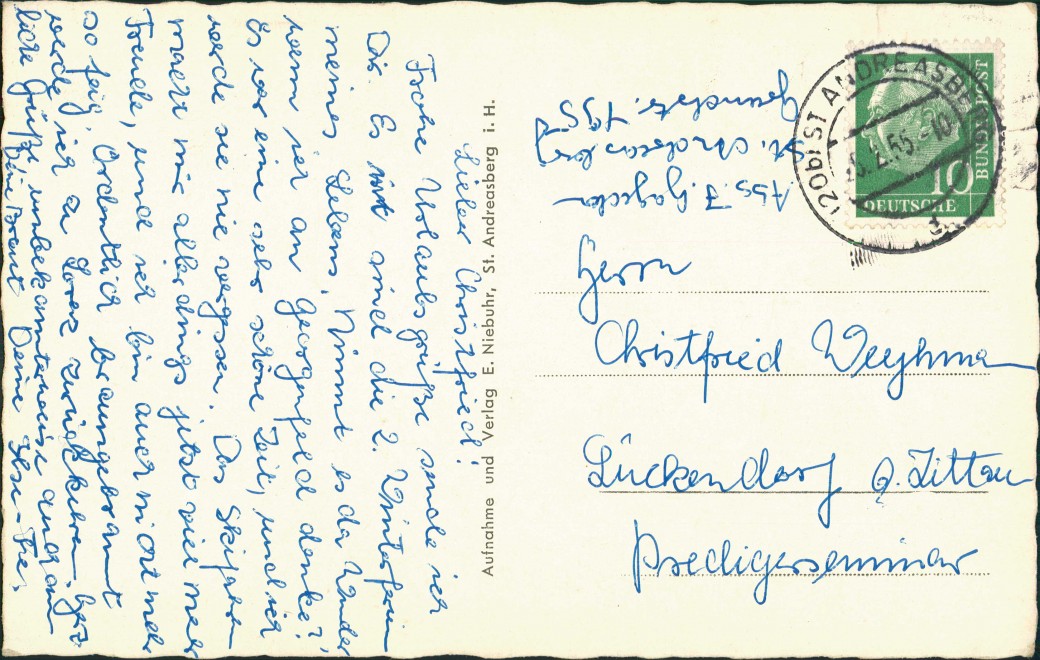 Lieber Christfried!
Frohe Urlaubsgrüße sende ich
Dir. Es sind die 2. Winterferien
meines Lebens. Nimmt es da Wunder
wenn ich an Georgenfeld denke?
Es war eine sehr schöne Zeit, und ich
werde sie nie vergessen. Das Skifahren
macht mir allerdings jetzt viel mehr
Freude, und ich bin auch nicht mehr
so feig. Ordentlich braungebrannt
werde ich zu zurückkehren.
liche Grüße unbekannterweise auch an
Deine Braut Deine
Aufnahme und Verlag E. Niebuhr, St. Andreasberg i. H.
Abs. J. Hagedorn
St. Andreasberg
195
(20b) ST ANDREASBERG
.2.55.-10
DEUTSCHE
BUNDESPOST
10
Herrn
Christfried Weyhmann
Lückendorf b. Zittau
Predigerseminar